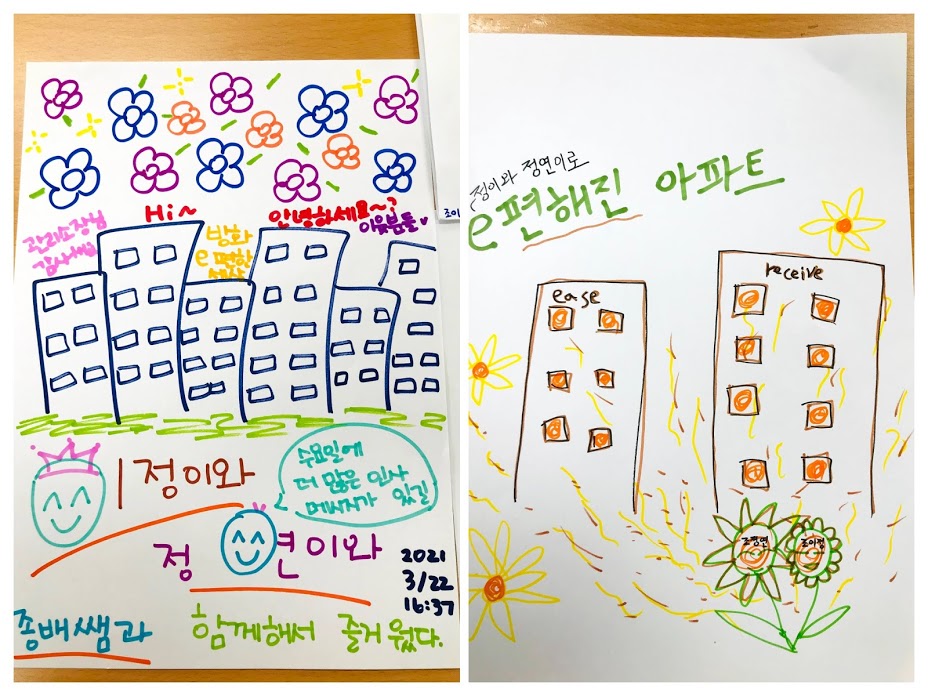 관리소장님
Hi~
방화
e편한
세상
안녕하세요~?
이웃분들♥
조이
이정이와
수요일에
더 많은 인사
메시지가 있길
정연이와
2021
3/22
16:37
종배쌤과 함께해서 즐거웠다.
정이와 정연이로
e편해진 아파트
ease
receive
조정연
조이정